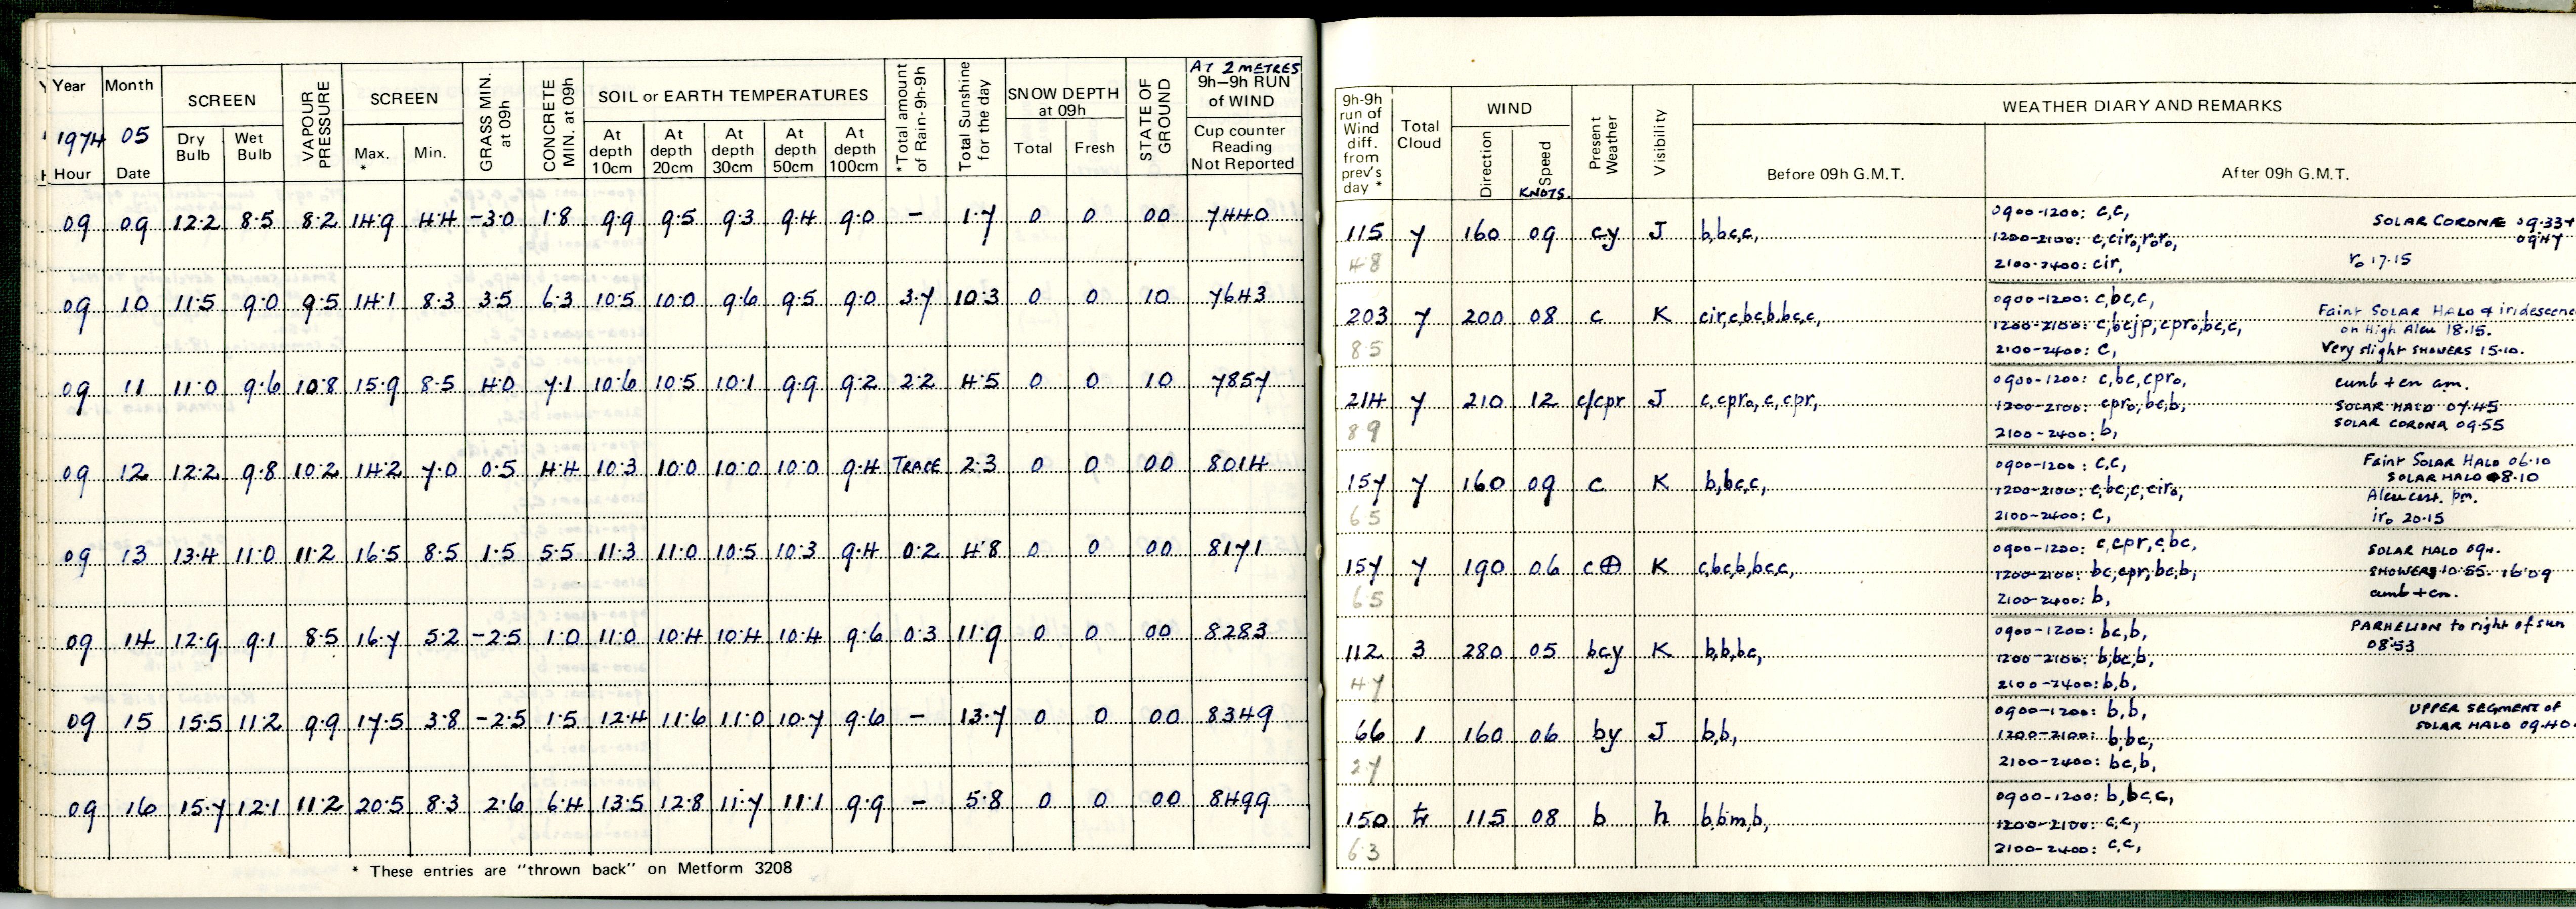 Year Month SCREEN VAPOUR PRESSURE SCREEN GRASS MIN. at 09h CONCRETE MIN. at 09h SOIL or EARTH TEMPERATURES *Total amount of Rain-9h-9h Total Sunshine for the day SNOW DEPTH at 09h STATE OF GROUND AT 2 METRES 9h–9h RUN of WIND
1974 05 Dry Bulb Wet Bulb Max. * Min. At depth 10cm At depth 20cm At depth 30cm At depth 50cm At depth 100cm Total Fresh Cup counter Reading Not Reported
Hour Date
09 09 12.2 8.5 8.2 14.9 4.4 -3.0 1.8 9.9 9.5 9.3 9.4 9.0 – 1.7 0 0 00 7440
09 10 11.5 9.0 9.5 14.1 8.3 3.5 6.3 10.5 10.0 9.6 9.5 9.0 3.7 10.3 0 0 10 7643
09 11 11.0 9.6 10.8 15.9 8.5 4.0 7.1 10.6 10.5 10.1 9.9 9.2 2.2 4.5 0 0 10 7857
09 12 12.2 9.8 10.2 14.2 7.0 0.5 4.4 10.3 10.0 10.0 10.0 9.4 TRACE 2.3 0 0 00 8014
09 13 13.4 11.0 11.2 16.5 8.5 1.5 5.5 11.3 11.0 10.5 10.3 9.4 0.2 4.8 0 0 00 8171
09 14 12.9 9.1 8.5 16.7 5.2 -2.5 1.0 11.0 10.4 10.4 10.4 9.6 0.3 11.9 0 0 00 8283
09 15 15.5 11.2 9.9 17.5 3.8 -2.5 1.5 12.4 11.6 11.0 10.7 9.6 – 13.7 0 0 00 8349
09 16 15.7 12.1 11.2 20.5 8.3 2.6 6.4 13.5 12.8 11.7 11.1 9.9 – 5.8 0 0 00 8499
* These entries are "thrown back" on Metform 3208
9h-9h run of Wind diff. from prev's day * Total Cloud WIND Present Weather Visibility WEATHER DIARY AND REMARKS
Direction Speed KNOTS. Before 09h G.M.T. After 09h G.M.T.
115 7 160 09 cy J b,bc,c, 0900-1200: c,c, SOLAR CORONÆ 09.33+
1200-2100: c,cir₀,r₀r₀, 09.47
48 2100-2400: cir, r₀ 17.15
203 7 200 08 c K cir,c,bc,b,bc,c, 0900-1200: c,bc,c, Faint SOLAR HALO & iridescenc
1200-2100: c,bcjp,cpr₀,bc,c, on High Alcu 18.15.
8.5 2100-2400: c, Very slight SHOWERS 15.10.
214 7 210 12 c/cpr J c,cpr₀,c,cpr, 0900-1200: c,bc,cpr₀, cunb + cn am.
1200-2100: cpr₀,bc,b, SOLAR HALO 07.45
89 2100-2400: b, SOLAR CORONA 09.55
157 7 160 09 c K b,bc,c, 0900-1200: c,c, Faint SOLAR HALO 06.10
SOLAR HALO 08.10
1200-2100: c,bc,c,cir₀, Alcu cast. pm.
65 2100-2400: c, ir₀ 20.15
157 7 190 06 c⊕ K c,bc,b,bc,c, 0900-1200: c,cpr,c,bc, SOLAR HALO 09h.
1200-2100: bc,cpr,bc,b, SHOWERS 10.55. 16.09
65 2100-2400: b, cunb + cn.
112 3 280 05 bcy K b,b,bc, 0900-1200: bc,b, PARHELION to right of sun
1200-2100: b,bc,b, 08.53
47 2100-2400: b,b,
66 1 160 06 by J b,b, 0900-1200: b,b, UPPER SEGMENT OF
1200-2100: b,bc, SOLAR HALO 09.40.
27 2100-2400: bc,b,
150 115 08 b h b,bm,b, 0900-1200: b,bc,c,
1200-2100: c,c,
63 2100-2400: c,c,